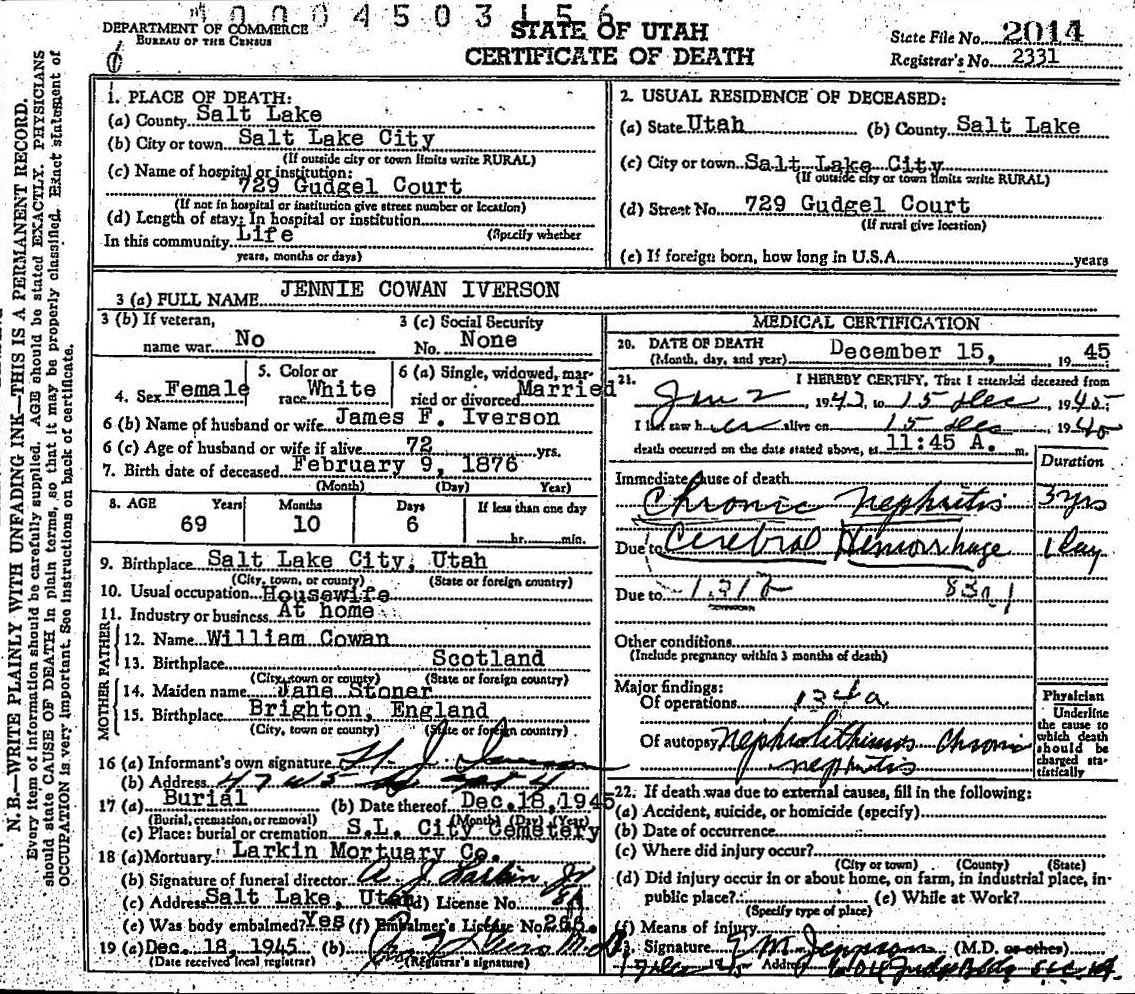 0 0 0 4 5 0 3 1 5 6
DEPARTMENT OF COMMERCE
BUREAU OF THE CENSUS
STATE OF UTAH
CERTIFICATE OF DEATH
State File No. 2014
Registrar's No. 2331
N. B.—WRITE PLAINLY WITH UNFADING INK—THIS IS A PERMANENT RECORD.
Every item of information should be carefully supplied. AGE should be stated EXACTLY. PHYSICIANS
should state CAUSE OF DEATH in plain terms, so that it may be properly classified. Exact statement of
OCCUPATION is very important. See instructions on back of certificate.
1. PLACE OF DEATH:
(a) County Salt Lake
(b) City or town Salt Lake City
(If outside city or town limits write RURAL)
(c) Name of hospital or institution:
729 Gudgel Court
(If not in hospital or institution give street number or location)
(d) Length of stay: In hospital or institution
(Specify whether
In this community Life
years, months or days)
2. USUAL RESIDENCE OF DECEASED:
(a) State Utah (b) County Salt Lake
(c) City or town Salt Lake City
(If outside city or town limits write RURAL)
(d) Street No. 729 Gudgel Court
(If rural give location)
(e) If foreign born, how long in U.S.A. years
3 (a) FULL NAME JENNIE COWAN IVERSON
3 (b) If veteran, name war No
3 (c) Social Security No. None
4. Sex Female
5. Color or race White
6 (a) Single, widowed, married or divorced Married
6 (b) Name of husband or wife James F. Iverson
6 (c) Age of husband or wife if alive 72 yrs.
7. Birth date of deceased February 9, 1876
(Month) (Day) Year)
8. AGE Years Months Days If less than one day
69 10 6 hr. min.
9. Birthplace Salt Lake City, Utah
(City, town, or county) (State or foreign country)
10. Usual occupation Housewife
11. Industry or business At home
FATHER
12. Name William Cowan
13. Birthplace Scotland
(City, town or county) (State or foreign country)
MOTHER
14. Maiden name Jane Stoner
15. Birthplace Brighton, England
(City, town or county) (State or foreign country)
16 (a) Informant's own signature
(b) Address
17 (a) Burial (b) Date thereof Dec.18,1945
(Burial, cremation, or removal) (Month) (Day) (Year)
(c) Place: burial or cremation S.L. City Cemetery
18 (a) Mortuary Larkin Mortuary Co.
(b) Signature of funeral director A J Larkin Jr
(c) Address Salt Lake, Utah (d) License No.
(e) Was body embalmed? Yes (f) Embalmer's License No.
19 (a) Dec. 18, 1945 (b)
(Date received local registrar) (Registrar's signature)
MEDICAL CERTIFICATION
20. DATE OF DEATH
(Month, day, and year) December 15, 19 45
21. I HEREBY CERTIFY, That I attended deceased from
Jan 2, 1943, to 15 Dec, 1945;
I last saw her alive on 15 Dec 1945
death occurred on the date stated above, at 11:45 A. m.
Duration
Immediate cause of death
Chronic nephritis 3 yrs
Due to Cerebral Hemorrhage 1 day
Due to 131 2 83a 1
Other conditions
(Include pregnancy within 3 months of death)
Major findings:
Of operations 134a
Of autopsy Nephrolithiasis Chronic
nephritis
Physician
Underline
the cause to
which death
should be
charged statistically
22. If death was due to external causes, fill in the following:
(a) Accident, suicide, or homicide (specify)
(b) Date of occurrence
(c) Where did injury occur?
(City or town) (County) (State)
(d) Did injury occur in or about home, on farm, in industrial place, in public place? (e) While at Work?
(Specify type of place)
(f) Means of injury
23. Signature M. Jennson (M.D. or other)
17 Dec 1945 Address 604 Judge Bldg S.L.C. Ut.